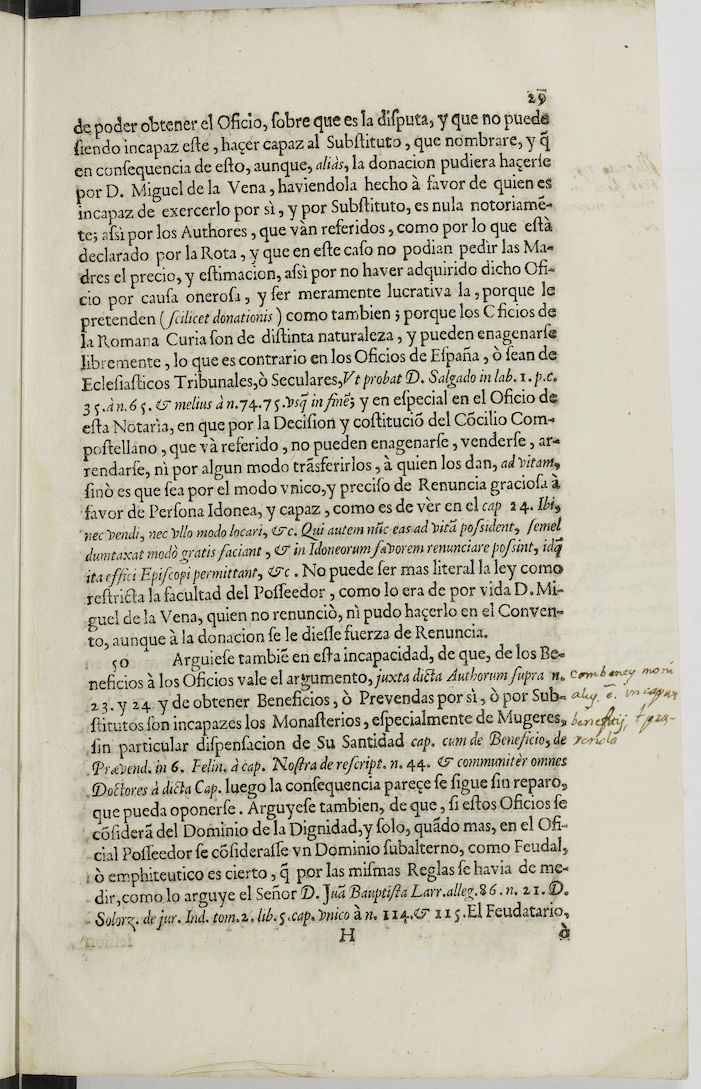 29
de poder obtener el Oficio, ſobre que es la diſputa, y que no puede
ſiendo incapaz eſte, haçer capaz al Subſtituto, que nombrare, y q̃
en conſequencia de eſto, aunque, aliàs, la donacion pudiera haçerſe
por D. Miguel de la Vena, haviendola hecho à favor de quien es
incapaz de exercerlo por sì, y por Subſtituto, es nula notoriamẽ-
te; aſsi por los Authores, que vàn referidos, como por lo que eſtà
declarado por la Rota, y que en eſte caſo no podian pedir las Ma-
dres el precio, y eſtimacion, aſsi por no haver adquirido dicho Ofi-
cio por cauſa oneroſa, y ſer meramente lucrativa la, porque le
pretenden (ſcilicet donationis) como tambien; porque los Cficios de
la Romana Curia ſon de diſtinta naturaleza, y pueden enagenarſe
libremente, lo que es contrario en los Oficios de Eſpaña, ò ſean de
Ecleſiaſticos Tribunales,ò Seculares,Vt probat D. Salgado in lab. 1. p.c.
35. à n. 65. & melius à n.74.75. vsq̃ in finẽ; y en eſpecial en el Oficio de
eſta Notarìa, en que por la Deciſion y coſtituciõ del Cõcilio Com-
poſtellano, que và referido, no pueden enagenarſe, venderſe, ar-
rendarſe, nì por algun modo trãsferirlos, à quien los dan, ad vitam,
ſinò es que ſea por el modo vnico,y preciſo de Renuncia gracioſa à
favor de Perſona Idonea, y capaz, como es de vèr en el cap 24. Ibi,
nec vendi, nec vllo modo locari, &c. Qui autem nũc eas ad vitã poſsident, ſemel
dumtaxat modò gratis faciant, & in Idoneorum favorem renunciare poſsint, idq̃
ita effici Epiſcopi permittant, &c. No puede ſer mas literal la ley como
reſtricta la facultad del Poſſeedor, como lo era de por vida D. Mi-
guel de la Vena, quien no renunciò, nì pudo haçerlo en el Conven-
to, aunque à la donacion ſe le dieſſe fuerza de Renuncia.
50 Arguieſe tambiẽ en eſta incapacidad, de que, de los Be-
neficios à los Oficios vale el argumento, juxta dicta Authorum ſupra n.
23. y 24. y de obtener Beneficios, ò Prevendas por sì, ò por Sub-
ſtitutos ſon incapazes los Monaſterios, eſpecialmente de Mugeres,
ſin particular diſpenſacion de Su Santidad cap. cum de Beneficio, de
Prævend. in 6. Felin. à cap. Noſtra de reſcript. n. 44. & communitèr omnes
Doctores à dicta Cap. luego la conſequencia pareçe ſe ſigue ſin reparo,
que pueda oponerſe. Arguyeſe tambien, de que, ſi eſtos Oficios ſe
cõſiderã del Dominio de la Dignidad,y ſolo, quãdo mas, en el Ofi-
cial Poſſeedor ſe cõſideraſſe vn Dominio ſubalterno, como Feudal,
ò emphiteutico es cierto, q̃ por las miſmas Reglas ſe havia de me-
dir,como lo arguye el Señor D. Juã Bauptiſta Larr.alleg.86. n. 21. D.
Solorz. de jur. Ind. tom.2. lib. 5. cap. vnico à n. 114.& 115. El Feudatario,
H
ò